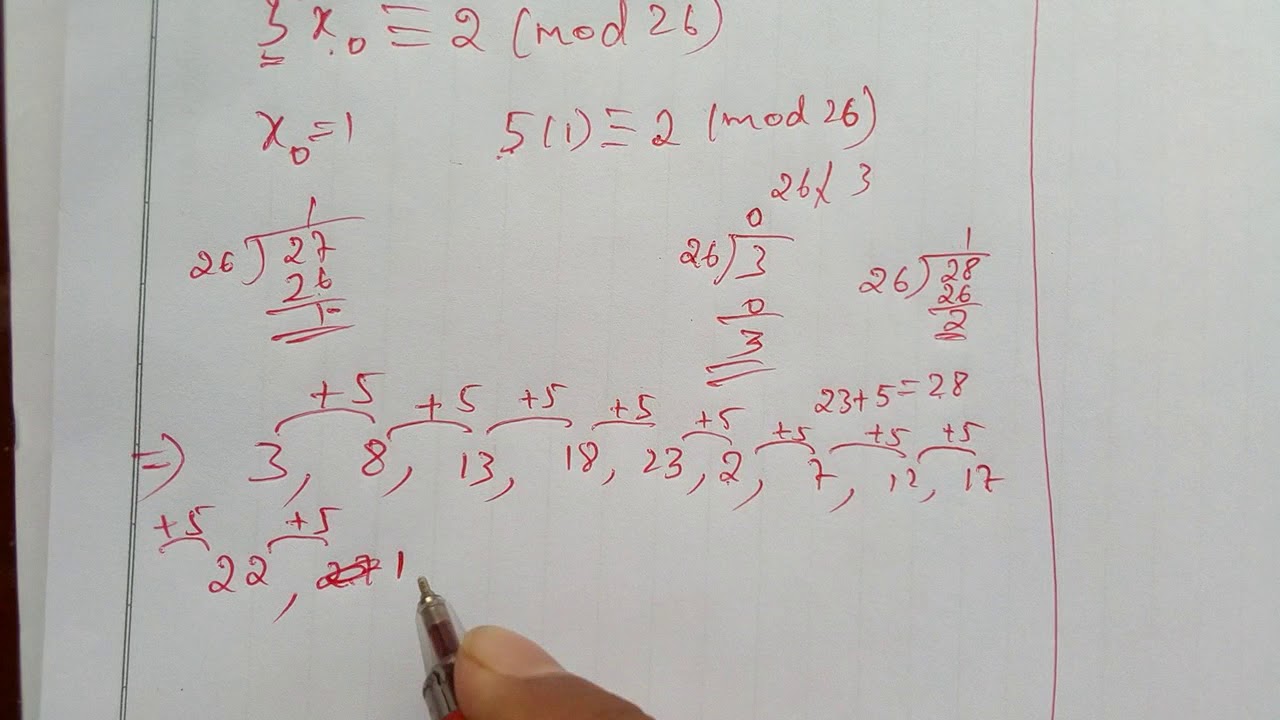 5 x₀ ≡ 2 (mod 26)
x₀ = 1 5(1) ≡ 2 (mod 26)
26 ∤ 3
1 0 1
26 ) 27 26 ) 3 26 ) 28
26 0 26
1 3 2
+5 +5 +5 +5 +5 23+5=28
+5 +5 +5
⇒ 3, 8, 13, 18, 23, 2, 7, 12, 17
+5 +5
22, 1